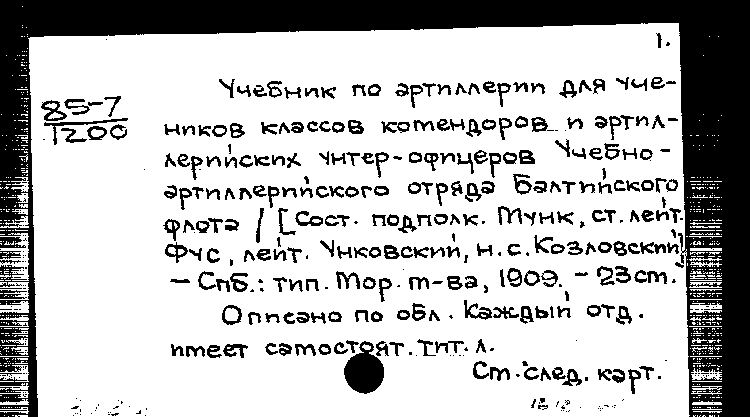 1.
85-7
1200
Учебник по артиллерии для уче-
ников классов комендоров и артил-
лерийских унтер-офицеров Учебно-
артиллерийского отряда Балтийского
флота / [Сост. подполк. Мунк, ст. лейт.
Фус, лейт. Унковский, н.с. Козловский]
— Спб.: тип. Мор. м-ва, 1909. - 23 cm.
Описано по обл. Каждый отд.
имеет самостоят. тит. л.
См. след. карт.